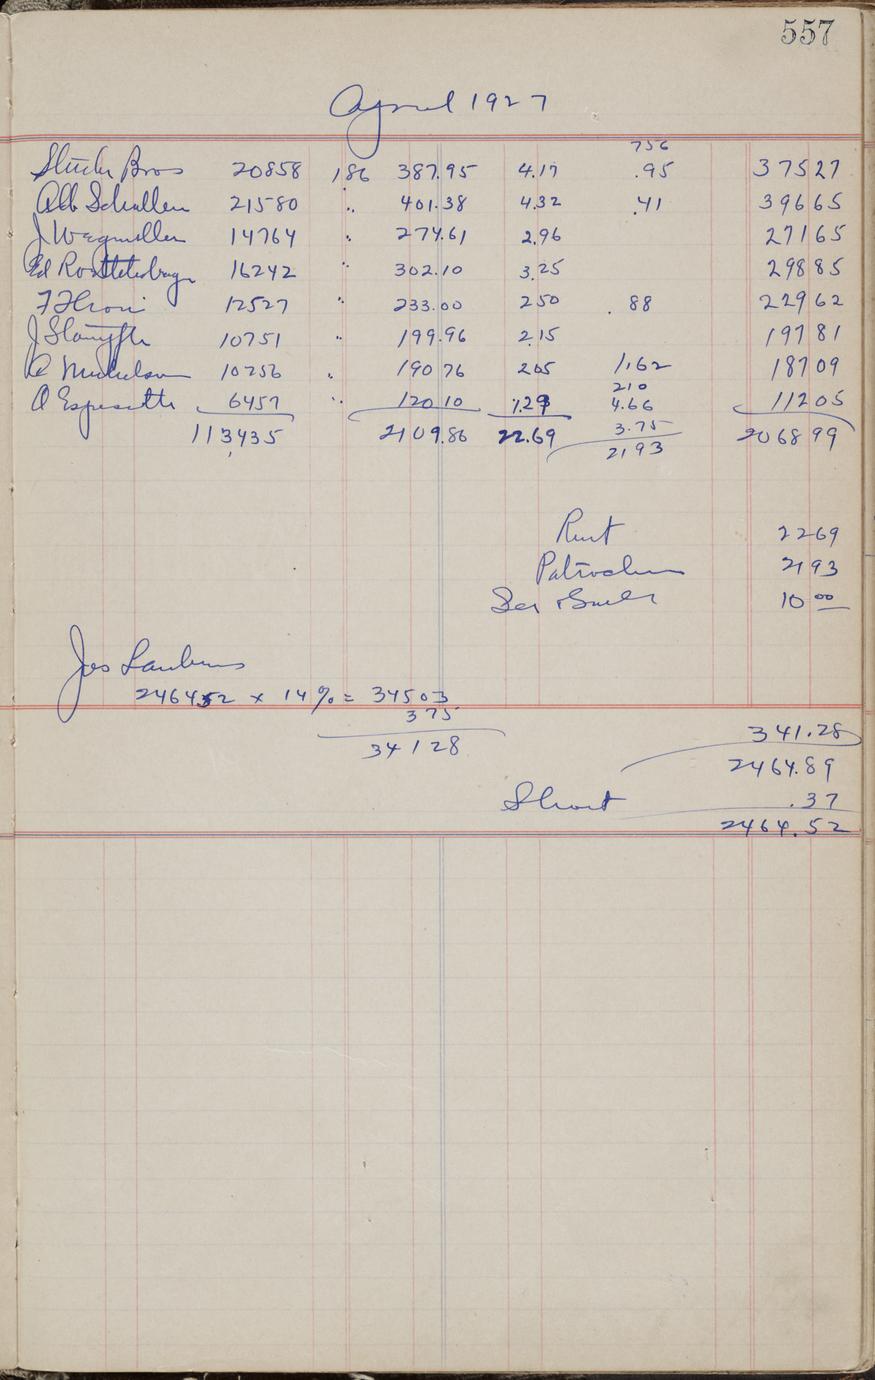 557
April 1927
756
Bros 20858 186 387.95 4.17 .95 37527
Alb Schallen 21580 " 401.38 4.32 .41 39665
J Wagmiller 14764 " 274.61 2.96 27165
Ed 16242 " 302.10 3.25 29885
F 12527 " 233.00 250 88 22962
J 10751 " 199.96 2.15 19781
A Nicholson 10256 " 190 76 205 1.62 18709
210
A 6457 " 120 10 1.29 4.66 11205
113435 2109.86 22.69 3.75 206899
2193
Rent 2269
2193
10 00
Jos
246452 x 14% = 34503
375
34128 341.28
2464.89
Short .37
2464.52